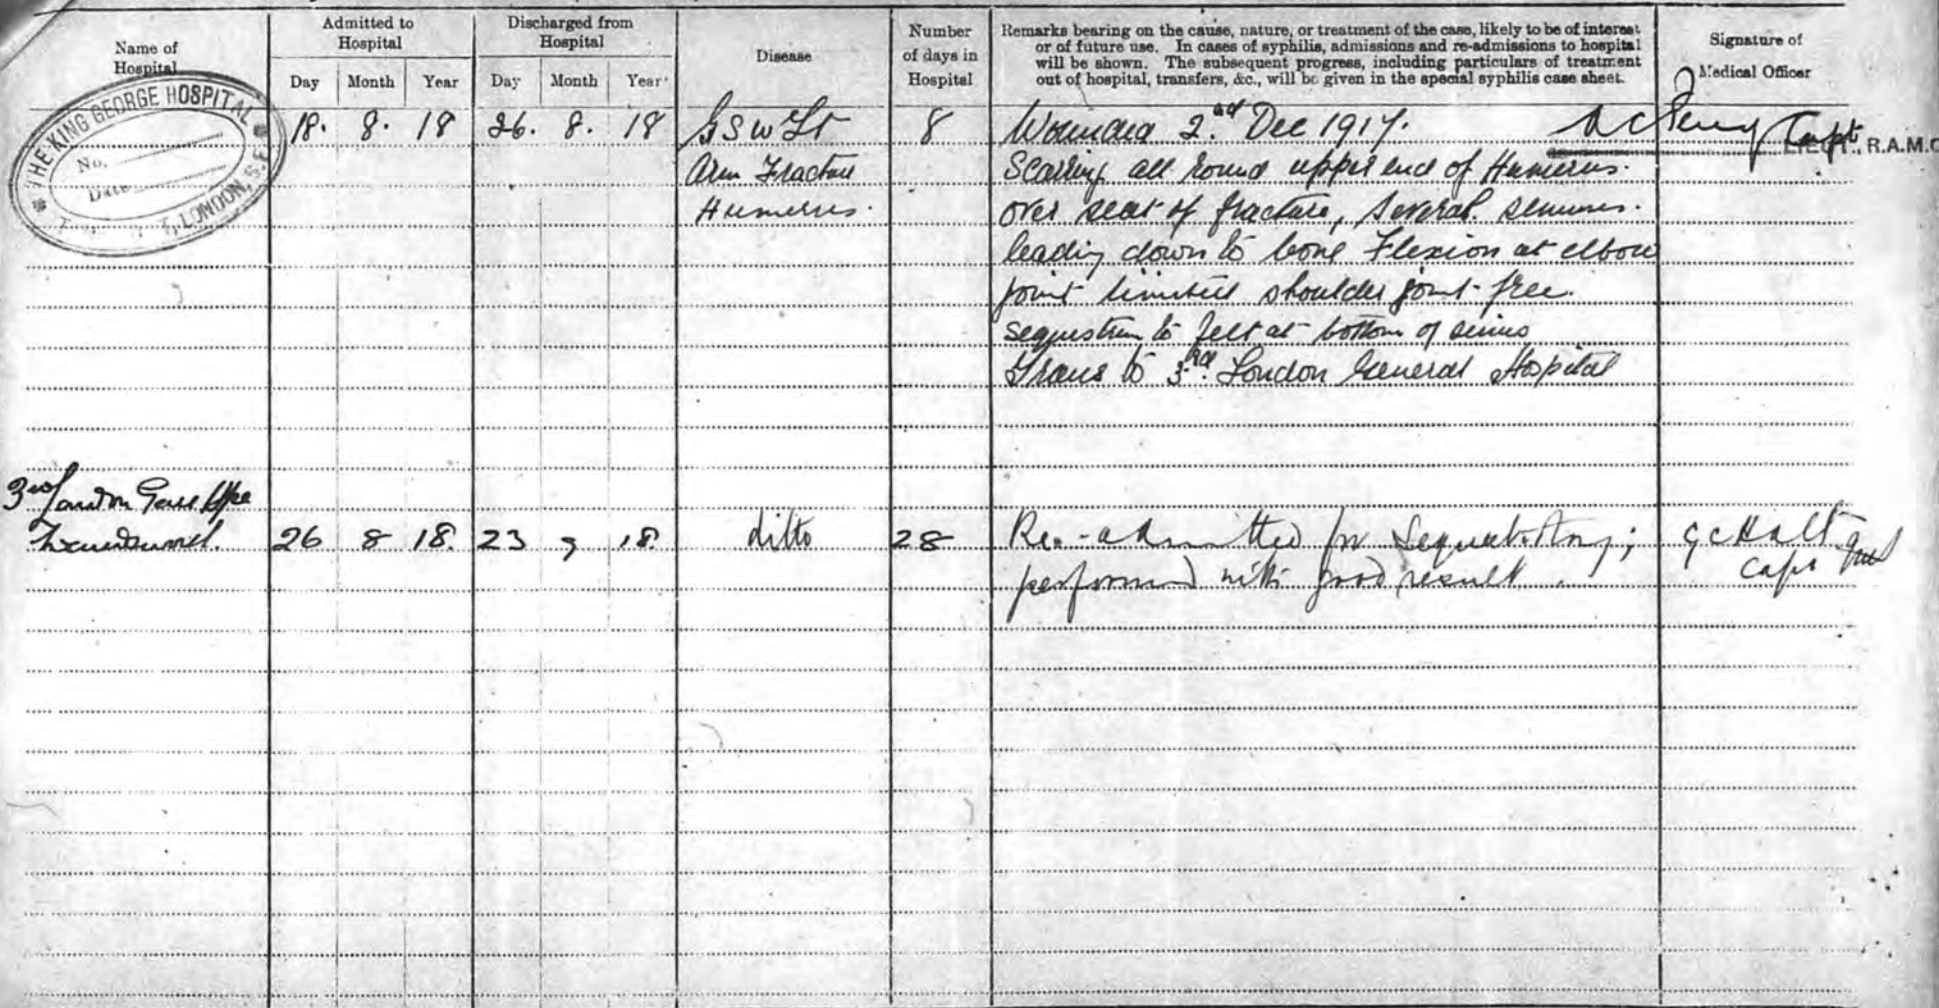 Name of
Hospital
Admitted to
Hospital
Day Month Year
Discharged from
Hospital
Day Month Year
Disease
Number
of days in
Hospital
Remarks bearing on the cause, nature, or treatment of the case, likely to be of interest
or of future use. In cases of syphilis, admissions and re-admissions to hospital
will be shown. The subsequent progress, including particulars of treatment
out of hospital, transfers, &c., will be given in the special syphilis case sheet.
Signature of
Medical Officer
THE KING GEORGE HOSPITAL
No.
Date
LONDON, S.E.
18. 8. 18 26. 8. 18 G S W Lt 8 Wounded 2nd Dec 1917. Capt., R.A.M.C
Arm Fracture Scarring all round upper end of Humerus.
Humerus. over seat of fracture, several sinuses.
leading down to bone Flexion at elbow
joint limited shoulder joint free.
sequestrum to felt at bottom of sinus
Trans to 3rd London General Hospital
3rd London Genl
26 8 18. 23 9 18. ditto 28 Re-admitted for Sequestrotomy; G C Halt
performed with good result. Capt